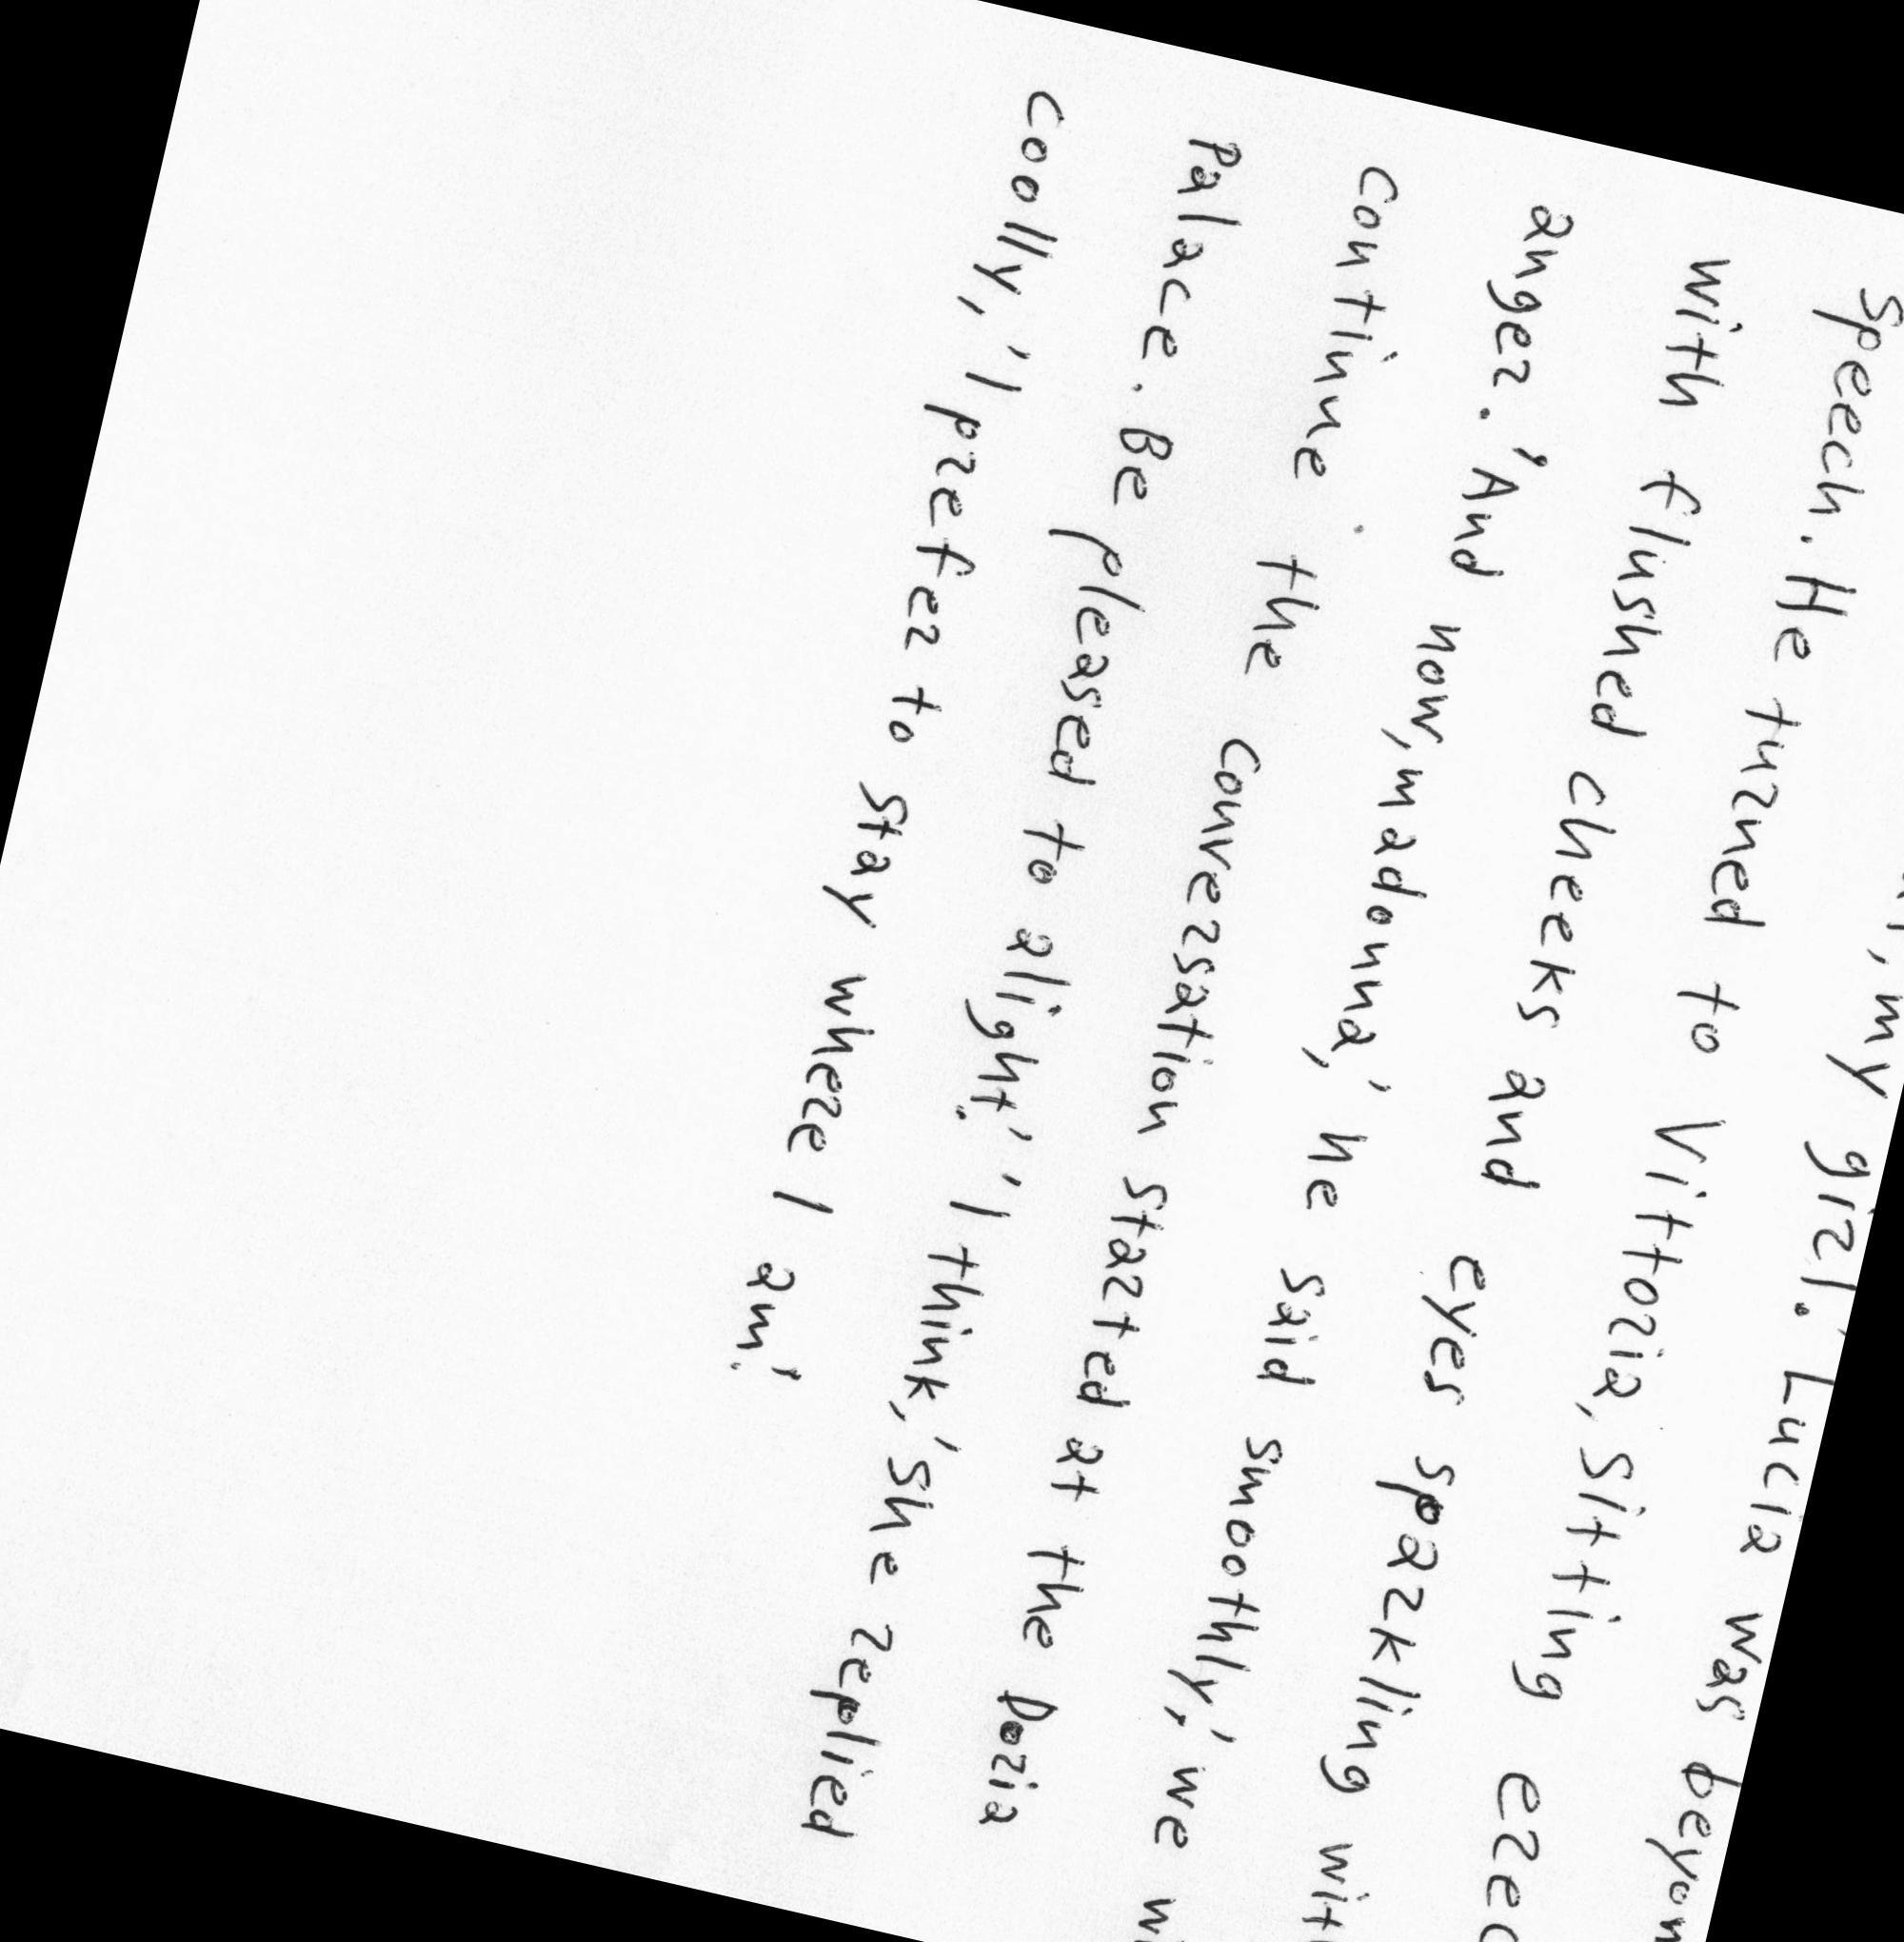 my girl.' Lucia was
speech. He turned to Vittoria, sitting
with flushed cheeks and eyes sparkling
anger.' And now, madonna,' he said smoothly,' we
continue the conversation started at the Poria
Palace. Be pleased to alight.' 'I think,' she replied
coolly,' 'I prefer to stay where I am.'